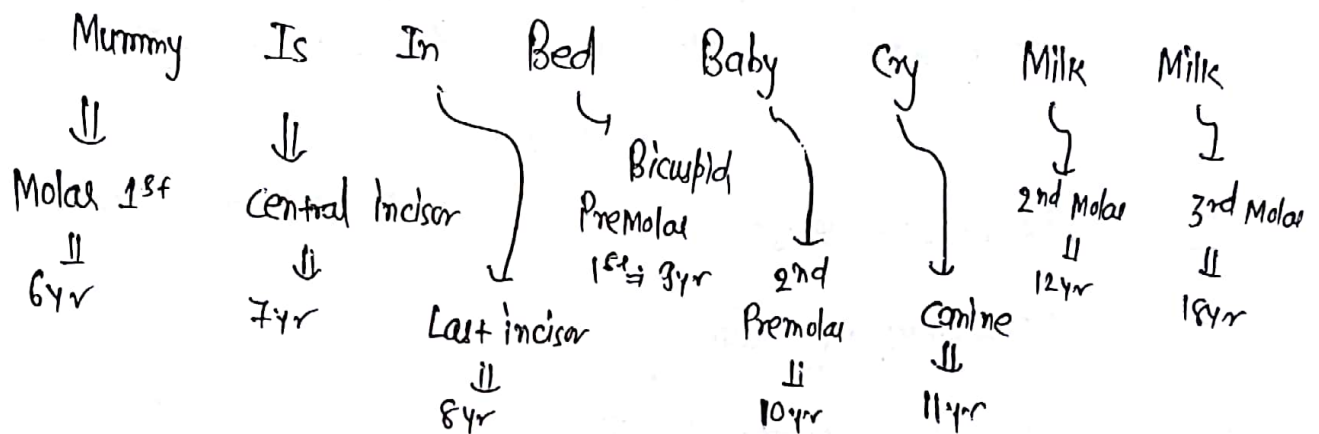 Mummy Is In Bed Baby Cry Milk Milk
Molar 1st
6yr
Central Incisor
7yr
Last incisor
8yr
Bicuspid
Premolar
1st ⇒ 9yr
2nd
Premolar
10yr
Canine
11yr
2nd Molar
12yr
3rd Molar
18yr